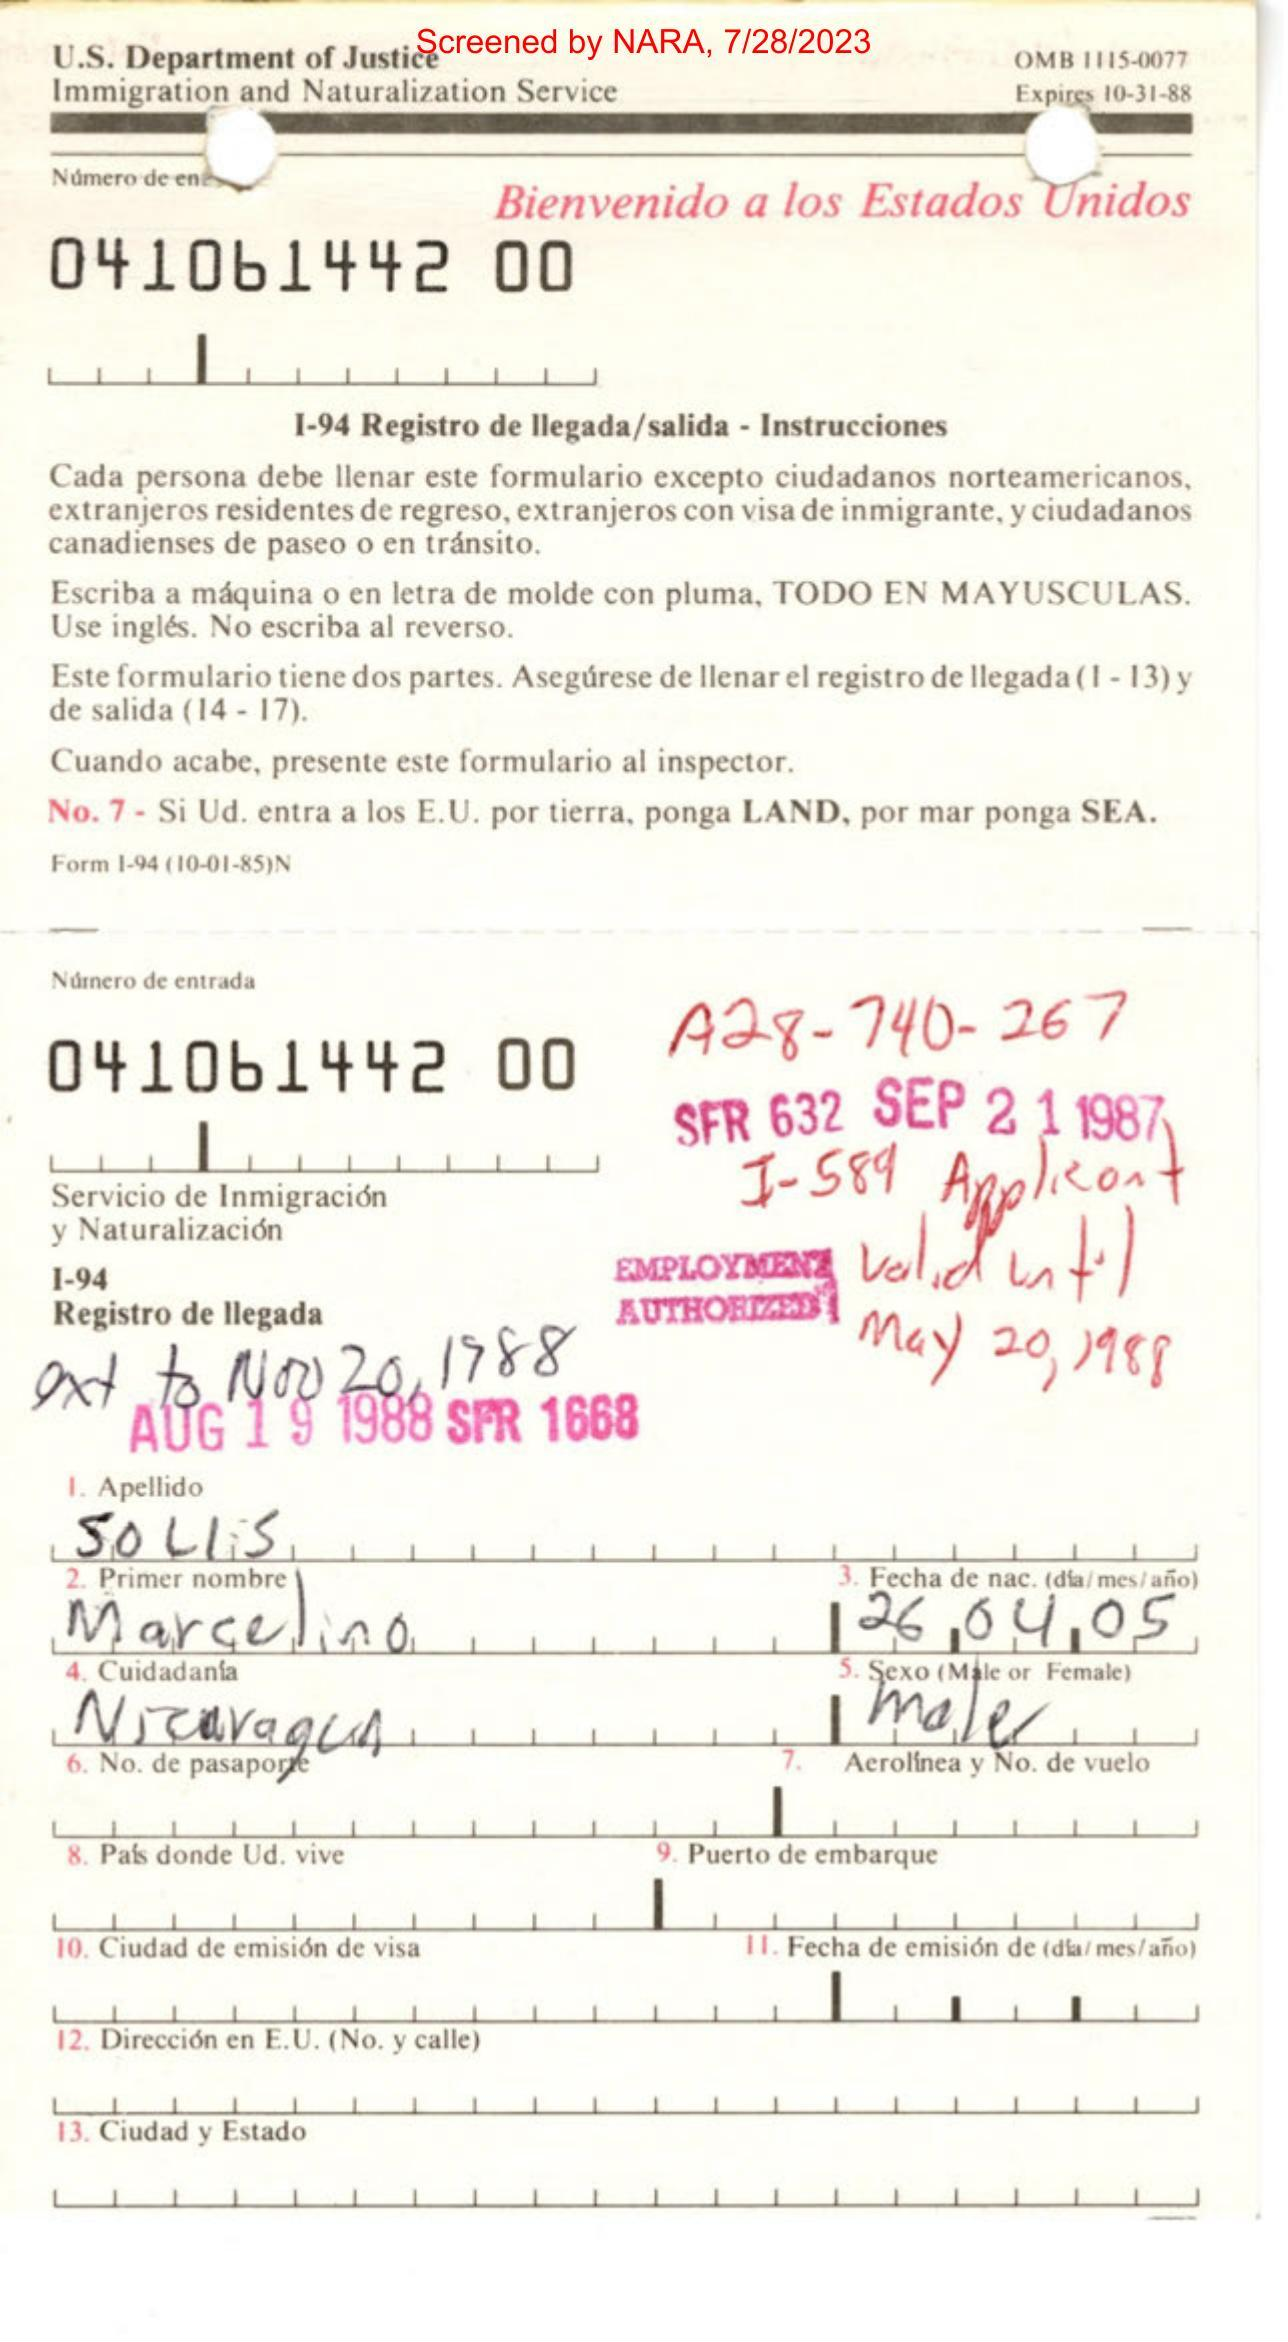 Screened by NARA, 7/28/2023
U.S. Department of Justice
Immigration and Naturalization Service
OMB 1115-0077
Expires 10-31-88
Número de
Bienvenido a los Estados Unidos
041061442 00
I-94 Registro de llegada/salida - Instrucciones
Cada persona debe llenar este formulario excepto ciudadanos norteamericanos,
extranjeros residentes de regreso, extranjeros con visa de inmigrante, y ciudadanos
canadienses de paseo o en tránsito.
Escriba a máquina o en letra de molde con pluma, TODO EN MAYUSCULAS.
Use inglés. No escriba al reverso.
Este formulario tiene dos partes. Asegúrese de llenar el registro de llegada (1 - 13) y
de salida (14 - 17).
Cuando acabe, presente este formulario al inspector.
No. 7 - Si Ud. entra a los E.U. por tierra, ponga LAND, por mar ponga SEA.
Form I-94 (10-01-85)N
Número de entrada
A28-740-267
041061442 00
SFR 632 SEP 21 1987
I-589 Applicant
Servicio de Inmigración
y Naturalización
EMPLOYMENT
AUTHORIZED
Valid until
May 20, 1988
I-94
Registro de llegada
ext to Nov 20, 1988
AUG 19 1988 SFR 1668
1. Apellido
SOLLIS
2. Primer nombre
3. Fecha de nac. (día/mes/año)
Marcelino
26 04 05
4. Cuidadanía
5. Sexo (Male or Female)
Nicaragua
male
6. No. de pasaporte
7. Aerolínea y No. de vuelo
8. País donde Ud. vive
9. Puerto de embarque
10. Ciudad de emisión de visa
11. Fecha de emisión de (día/mes/año)
12. Dirección en E.U. (No. y calle)
13. Ciudad y Estado